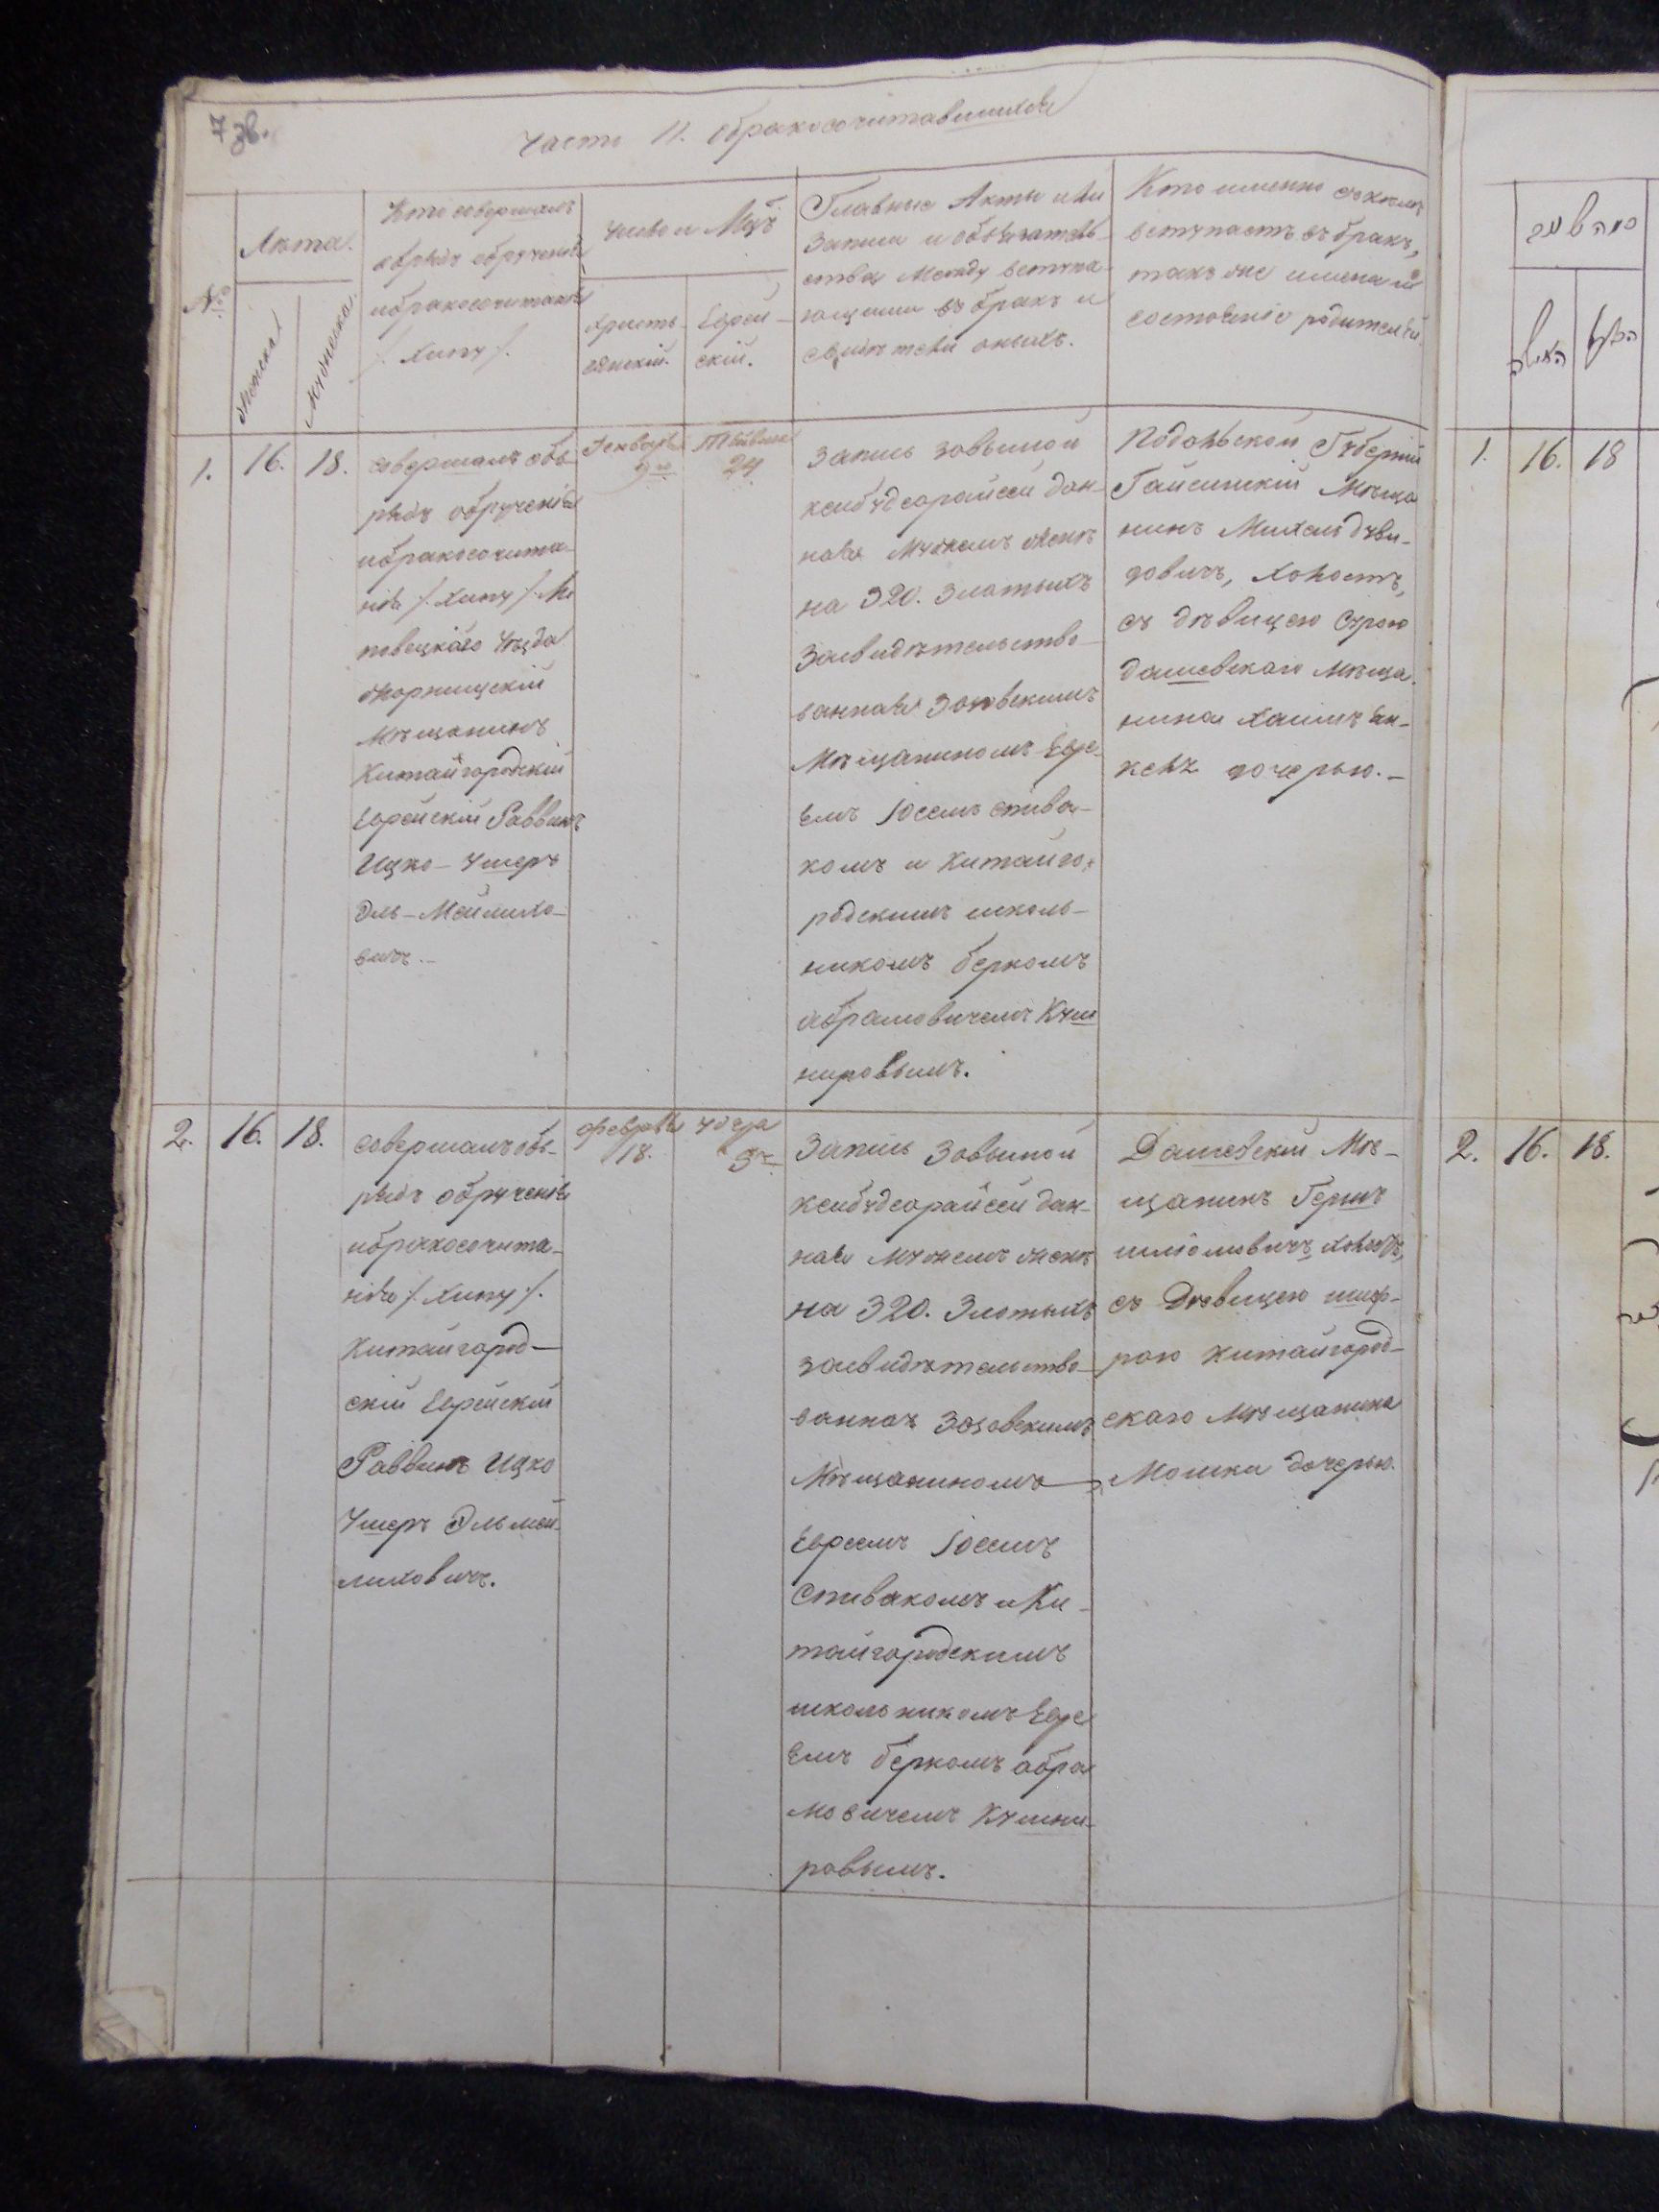 7 зв.
Часть II. обракосочитавшихся
№
Лѣта.
Женска
Мужеска.
Кто совершалъ
обрядъ обрученія
ибракосочитанія
/. Хипу /.
число и Мѣцъ
христі-
анскій.
Еврей-
скій.
Главные Акты или
записи и обязатель-
ства между вступа-
ющими въ бракъ и
свидѣтели оныхъ.
Кто именно съ кемъ
вступаетъ въ бракъ,
такъ же имена и
состояніе родителей.
1.
16.
18.
совершалъ обы-
рядъ обрученія
ибракосочита-
нія /. Хипу /.
повецкаго Уѣзда
Мѣщанинъ
Китайгородскій
Еврейскій Раввинъ
Ицко-Ушеръ
Эль-Мейлихо-
вичъ.-
Генваря
9го
Тейвеса
24
запись зовымой
ксибудеорайсеи дан-
ная мужемъ женѣ
на 320. Злотыхъ
Засвидѣтельство-
ванная Зозовскимъ
Мѣщаниномъ Евре-
емъ Іосемъ Спива-
комъ и Китайго-
родскимъ школь-
никомъ беркомъ
абрамовичемъ Куш
нировымъ.
Подольской Губерніи
Гайсинскій Мѣща
нинъ Михель дуви-
довичъ, холостъ,
съ дѣвицею Сурою
дашевскаго Мѣща-
нина Хаимъ Ян-
келя дочерью.-
2.
16.
18.
совершалъ обы-
рядъ обрученія
ибракосочита-
нія /. Хипу /.
Китайгород-
скій Еврейскій
Раввинъ Ицко
Ушеръ Эльмей-
лиховичъ.
февраля
18.
Удера
3го
Запись Зовымой
ксибудеорайсеи дан-
ная мужемъ женѣ
на 320. Злотыхъ
засвидѣтельство-
ванная Зозовскимъ
Мѣщаниномъ
Евреемъ Іосемъ
Спивакомъ и Ки-
тайгородскимъ
школьникомъ Евре
емъ беркомъ абра
мовичемъ Кушни-
ровымъ.
Дашевскій Мѣ-
щанинъ Гершъ
шліомовичъ холостъ,
съ Дѣвицею шиф-
рою китайгород-
скаго Мѣщанина
Мошки дочерью.
1.
16.
18
2.
16.
18.